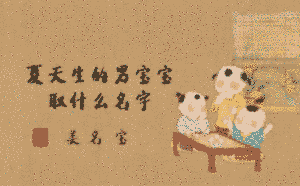 夏天生的男宝宝
取什么名字
美名宝